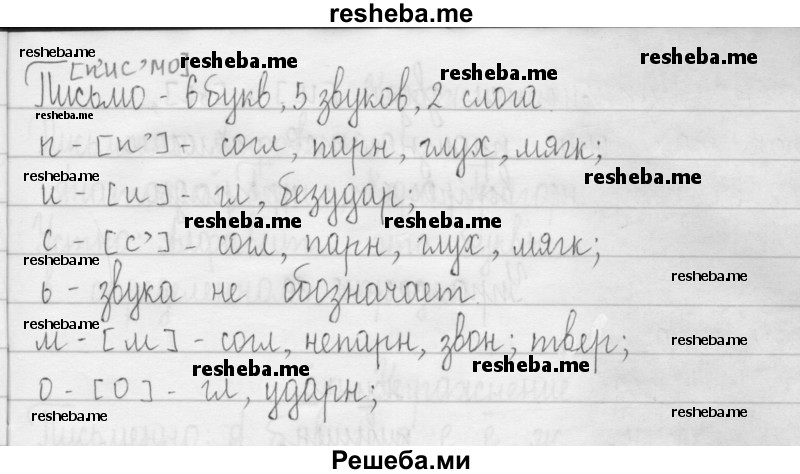 resheba.me
resheba.me resheba.me resheba.me
[п'ис'мо] resheba.me
Письмо - 6 букв, 5 звуков, 2 слога
resheba.me
п - [п'] - согл, парн, глух, мягк;
resheba.me resheba.me
и - [и] - гл, безудар;
resheba.me resheba.me
с - [с'] - согл, парн, глух, мягк;
resheba.me resheba.me
ь - звука не обозначает
resheba.me resheba.me
м - [м] - согл, непарн, звон; твер;
resheba.me resheba.me
о - [О] - гл, ударн;
resheba.me resheba.me
Решеба.ми